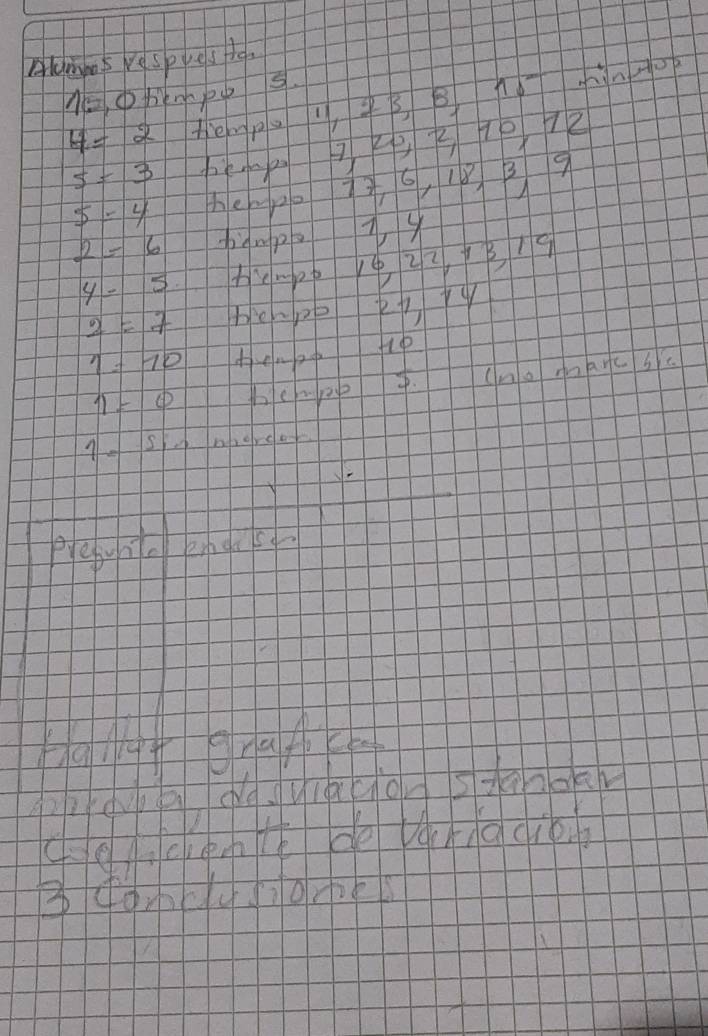 Alumnos respuesta
1=0 tiempo 5.
4= 2 tiempo 11, 23, 8, 15 minutos
5= 3 tiempo 7, 20, 2, 10, 12
5= 4 tiempo 17, 6, 18, 3, 9
2= 6 tiempo 1, 4
4= 5. tiempo 16, 22, 13, 19
2= 7 tiempo 21, 14
1= 10 tiempo
1= 0 tiempo 5. (no marc
1= sin marcar
Pregunta
Hallar grafica
media, desviacion standar
coeficiente de variación
3 conclusiones